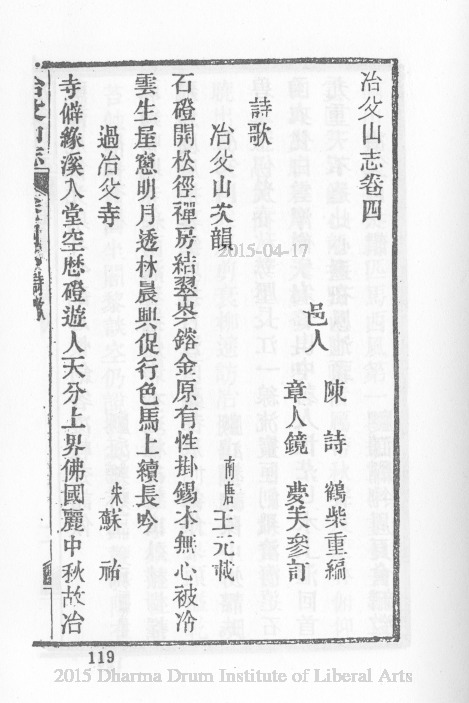 冶父山志卷四
邑人 陳詩 鶴柴重編
章人鏡 夢芙參訂
詩歌
冶父山次韻 南唐 王元載
石磴開松徑禪房結翠岑鎔金原有性掛錫本無心被冷
雲生屋窻明月透林晨興促行色馬上續長吟
過冶父寺 蘇祐
寺僻緣溪入堂空歷磴遊人天分上界佛國麗中秋故冶
冶父山志
119
2015-04-17
2015 Dharma Drum Institute of Liberal Arts